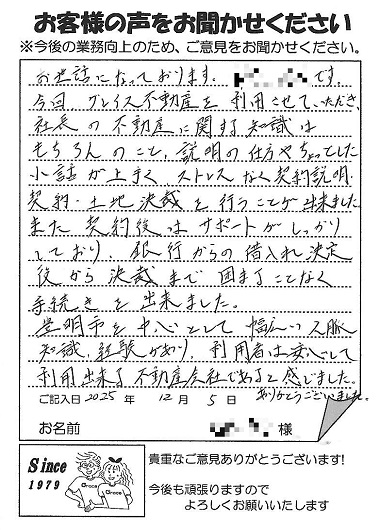 お客様の声をお聞かせください
※今後の業務向上のため、ご意見をお聞かせください。
お世話になっております。 です。
今回 グレイス不動産を利用させていただき、
社長の不動産に関する知識は
もちろんのこと、説明の仕方やちょっとした
小話が上手く、ストレスなく契約説明・
契約・土地決裁を行うことが出来ました
また契約後はサポートがしっかり
しており、銀行からの借入れ決定
後から決裁まで困まることなく
手続きを出来ました。
豊明市を中心として幅広い人脈
知識、経験があり、利用者は安心して
利用出来る不動産会社であると感じました。
ありがとうございました。
ご記入日 2025 年 12 月 5 日
お名前 様
Since
1979
Grace
Grace
貴重なご意見ありがとうございます!
今後も頑張りますので
よろしくお願いいたします